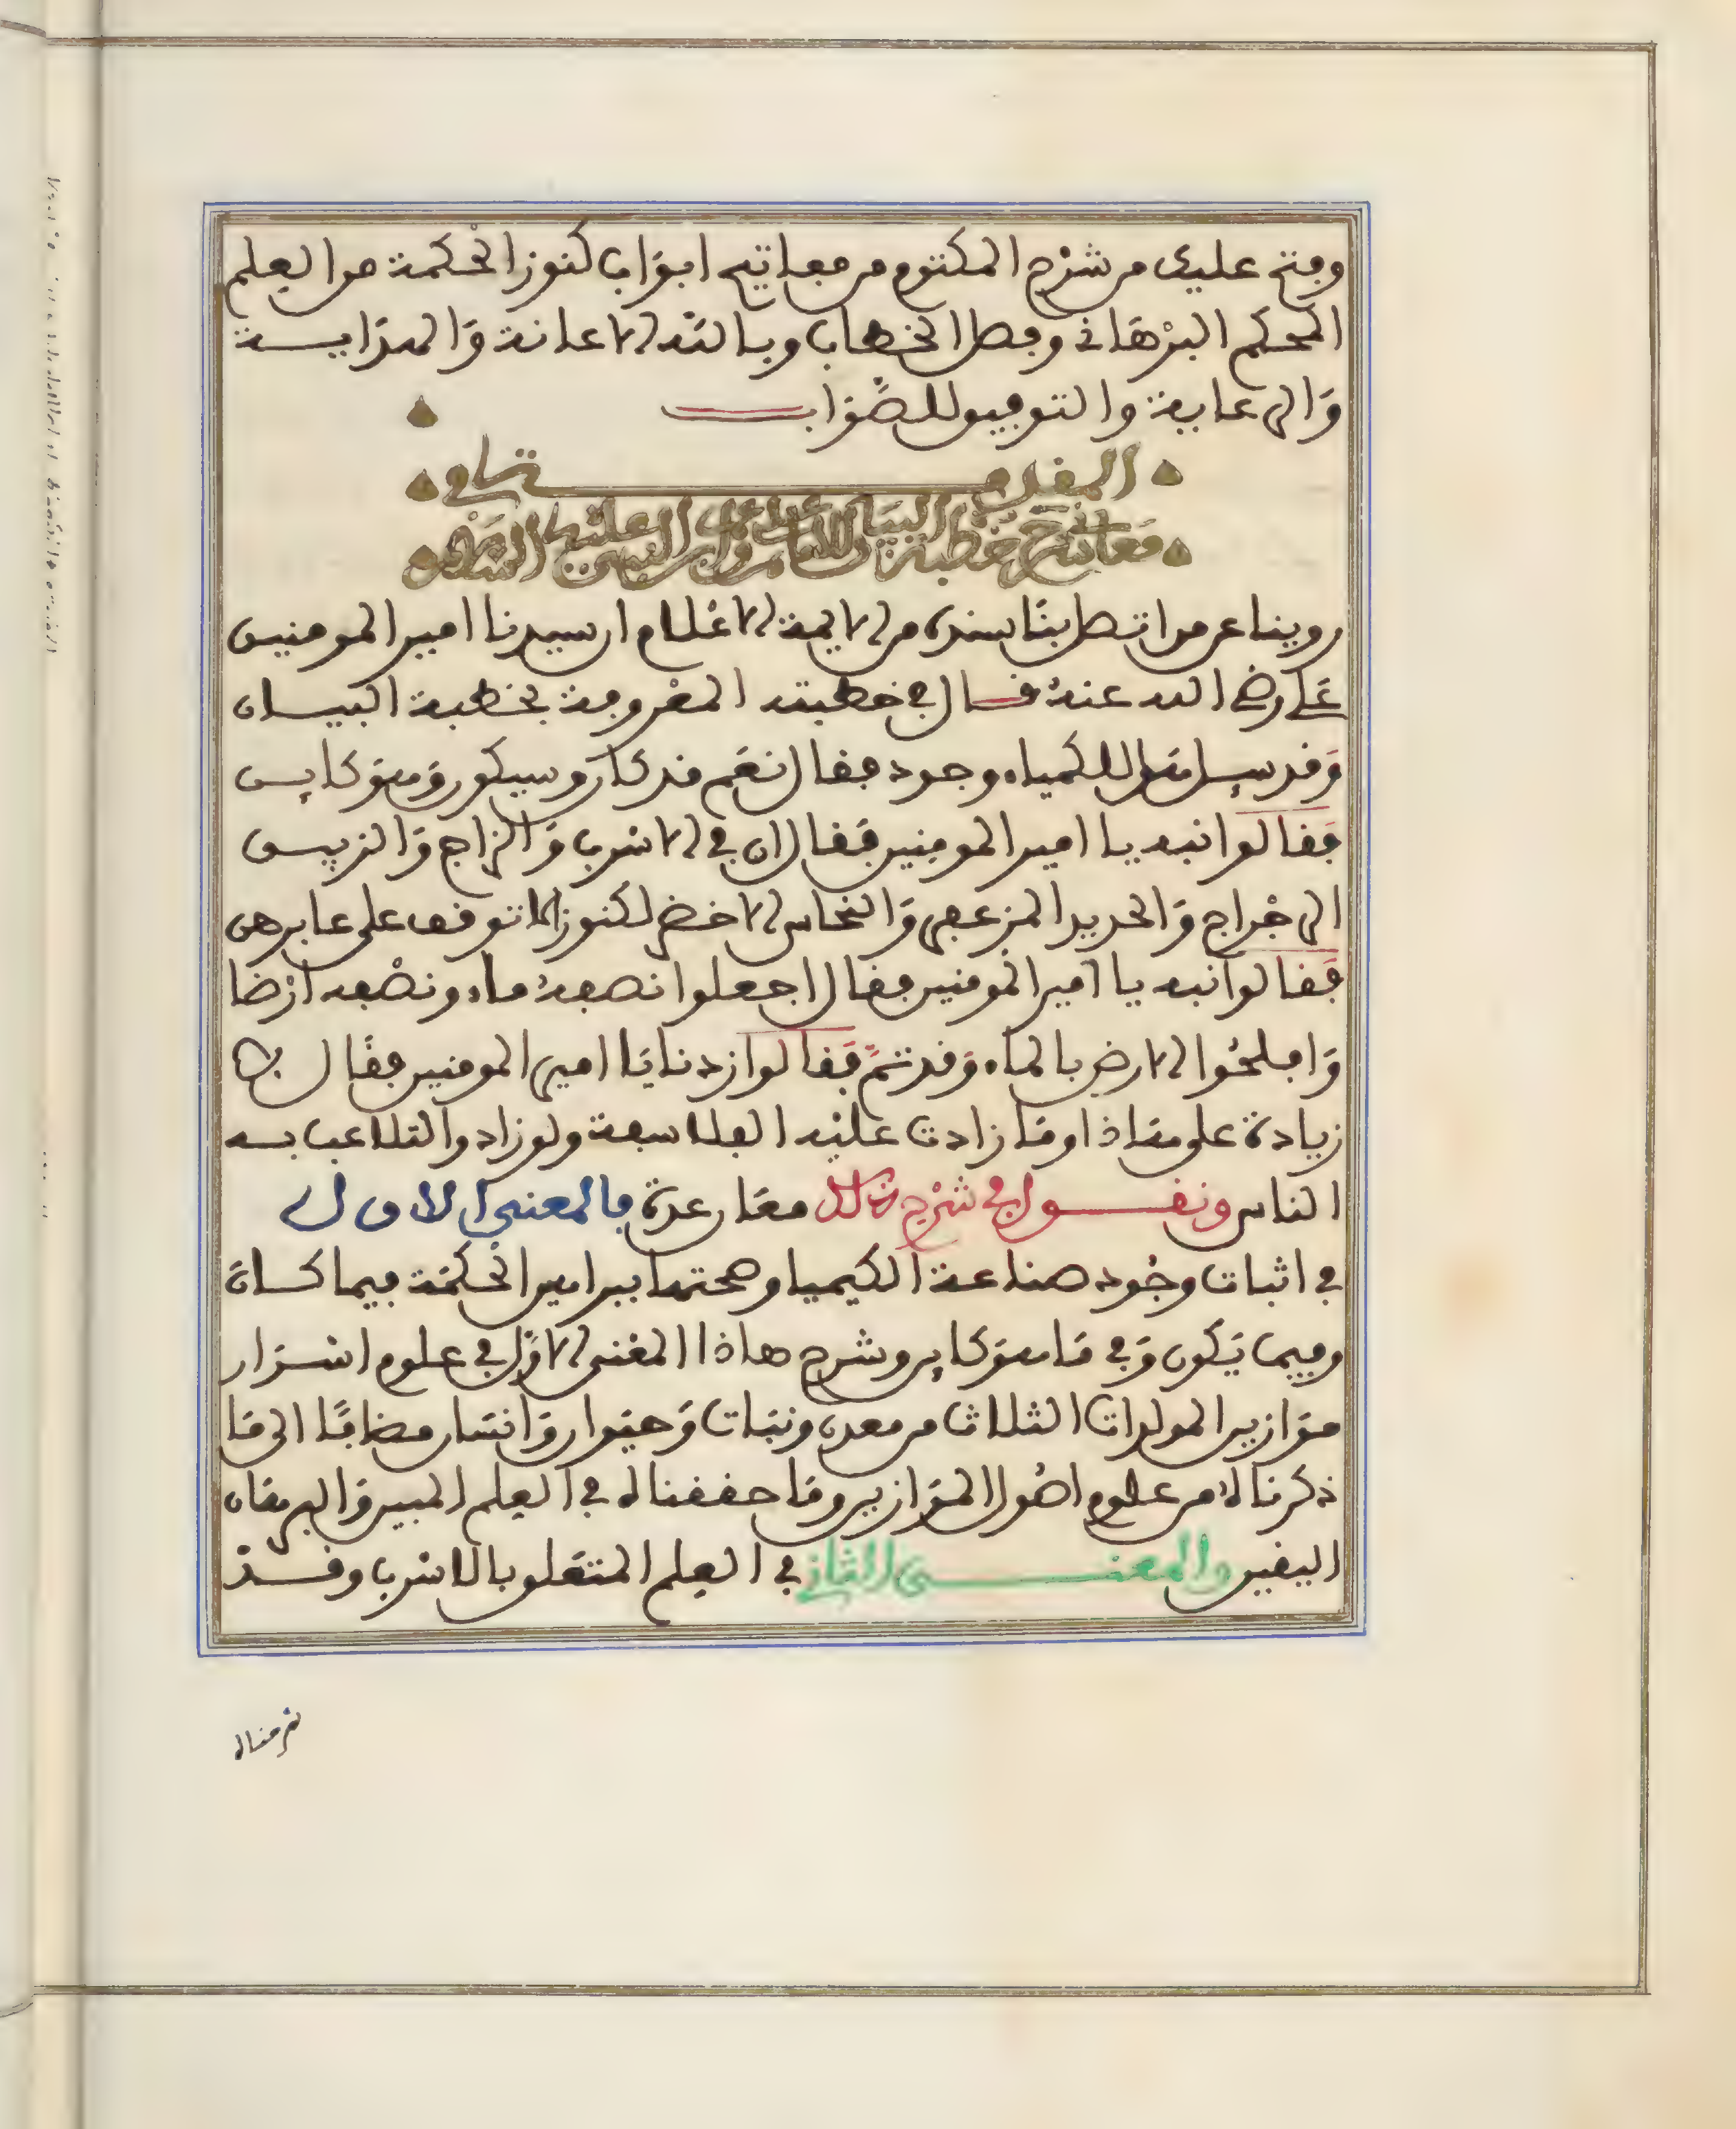 وفتح عليك من شرح المكتوم من مفاتيح ابواب كنوز الحكمة من العلم
المحكم البرهانى وفصل الخطاب وبالله الاعانة والهداية
والرعاية والتوفيق للصواب
المقدمة الثانية في
معاني شرح خطبة البيان للامام علي امير المؤمنين عليه السلام
روينا عن من اتصل بنا سنده من الايمة الاعلام ان سيدنا امير المومنين
علي رضي الله عنه قال في خطبته المعروفة بخطبة البيان
وقد سيل هل للكمياء وجود فقال نعم قد كان وسيكون وهو كاين
فقالوا انبه يا امير المومنين فقال ان في الاسرب والزاج والزيبق
الرجراج والحديد المزعفر والنحاس الاخضر لكنوز لا توقف على عابرهن
فقالوا انبه يا امير المومنين فقال اجعلوا نصفه ماء ونصفه ارضا
وافلحوا الارض بالماء وقد تم فقالوا زدنا يا امير المومنين فقال لا
زيادة على هاذا وما زادت عليه الفلاسفة ولو زادوا لتلاعب به
الناس ونقول في شرح ذلك معان عدة فالمعنى الاول
في اثبات وجود صناعة الكيميا وصحتها ببراهين الحكمة فيما كان
وفيما يكون وفي ما هو كاين وشرح هاذا المعنى الاول في علوم اسرار
موازين المولدات الثلاث من معدن ونبات وحيوان وانسان مضافا الى ما
ذكرناه من علوم اصول الموازين وما حققناه في العلم المبين والبرهان
اليقين والمعنى الثاني في العلم المتعلق بالاسرب وقد
شرحناه